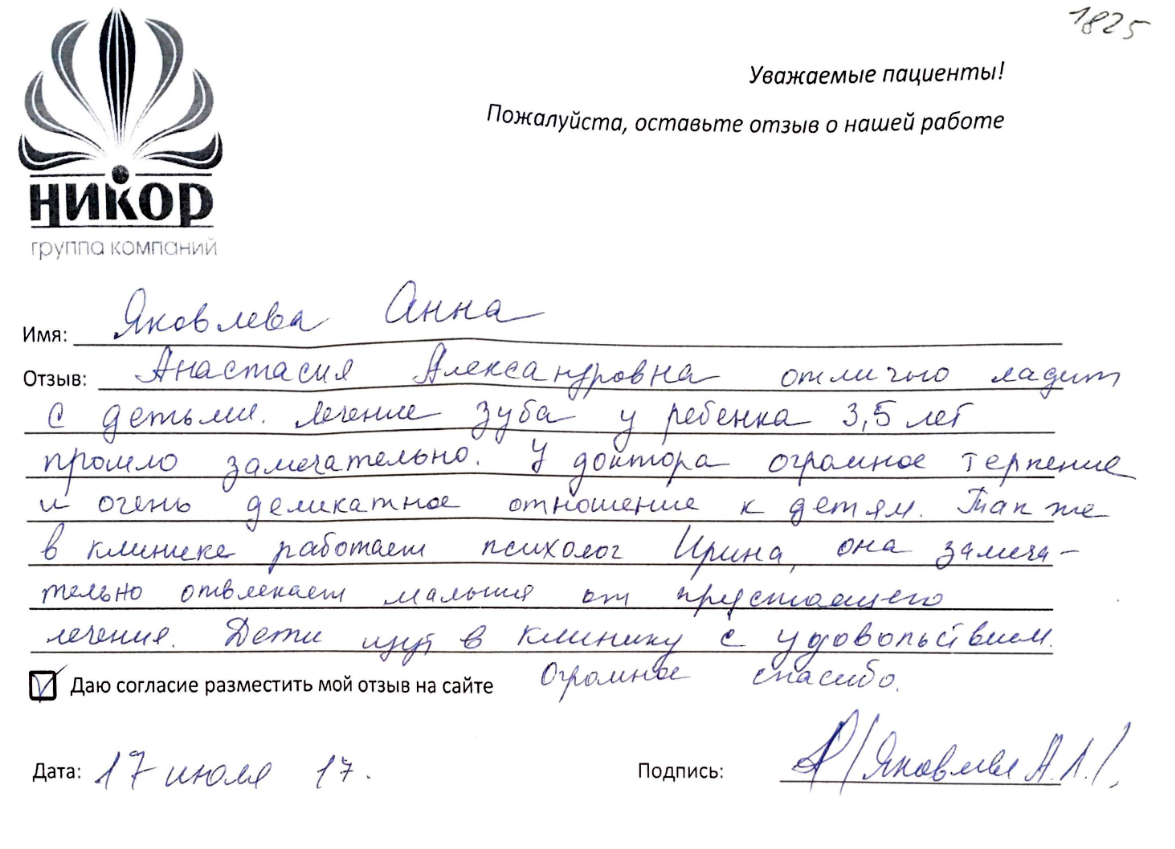 1825
Уважаемые пациенты!
Пожалуйста, оставьте отзыв о нашей работе
НИКОР
группа компаний
Имя: Яковлева Анна
Отзыв: Анастасия Александровна отлично ладит
с детьми. Лечение зуба у ребенка 3,5 лет
прошло замечательно. У доктора огромное терпение
и очень деликатное отношение к детям. Так же
в клинике работает психолог Ирина, она замеча-
тельно отвлекает малыша от предстоящего
лечения. Дети идут в клинику с удовольствием.
Даю согласие разместить мой отзыв на сайте Огромное спасибо.
Дата: 17 июля 17. Подпись: /Яковлева А.Л./